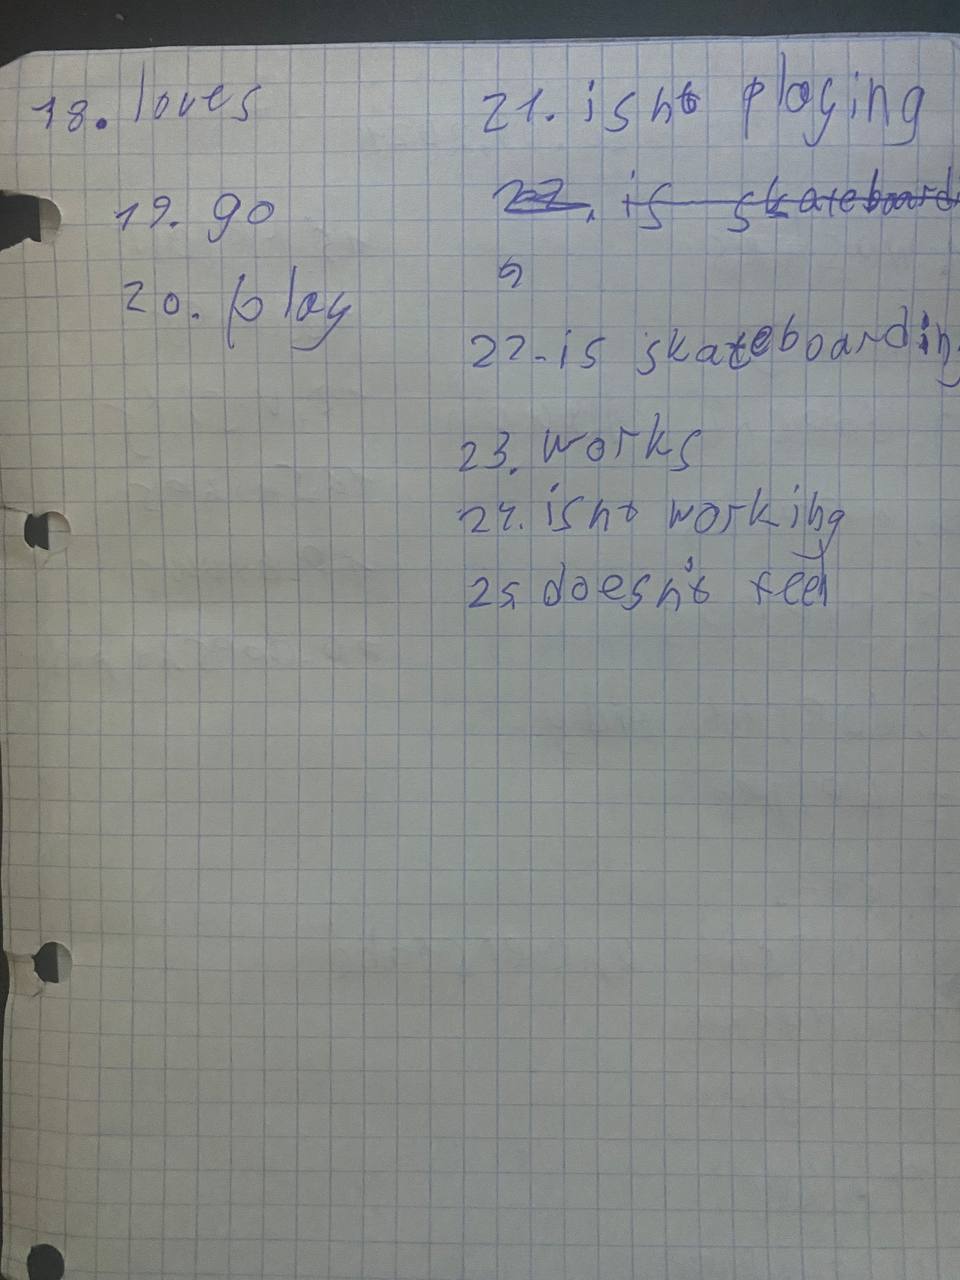 18. loves
19. go
20. play
21. isnt playing
22. is skateboard
22. is skateboarding
23. works
24. isnt working
25. doesn't feel